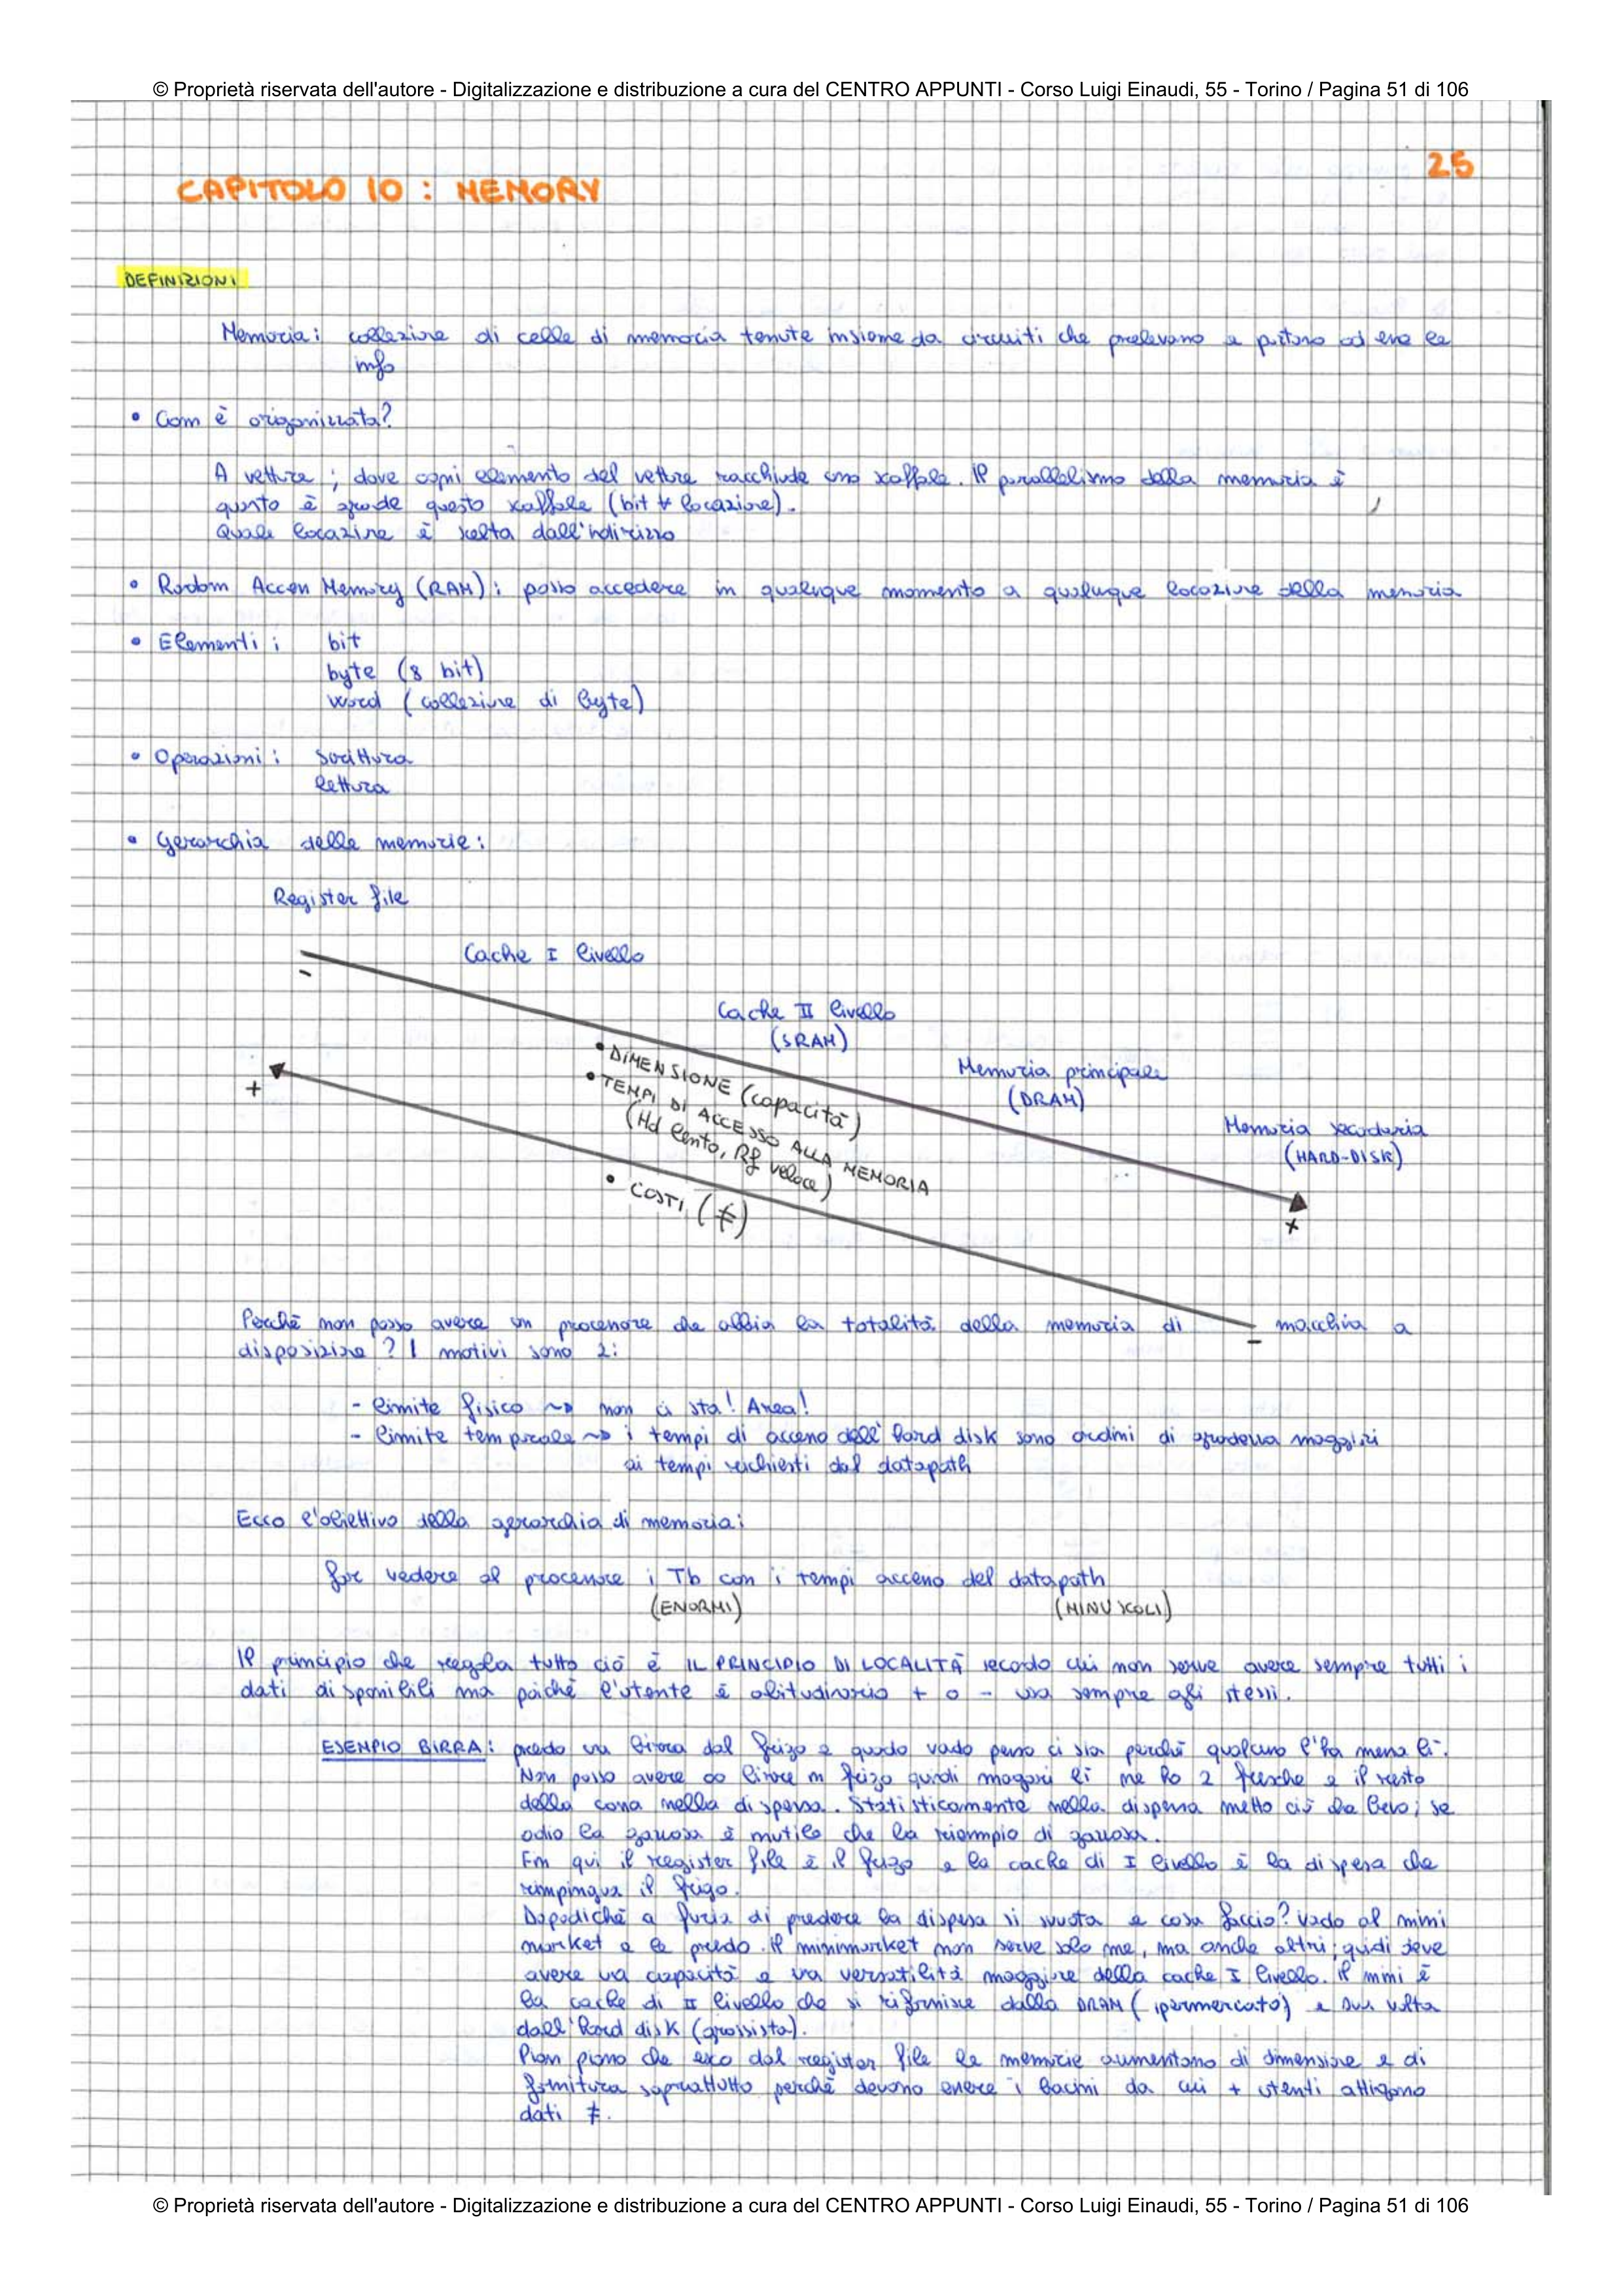 © Proprietà riservata dell'autore - Digitalizzazione e distribuzione a cura del CENTRO APPUNTI - Corso Luigi Einaudi, 55 - Torino / Pagina 51 di 106
25
CAPITOLO 10 : MEMORY
DEFINIZIONI
Memoria: collezione di celle di memoria tenute insieme da circuiti che prelevano e portano ad essa le
info
• Com è organizzata?
A vettore ; dove ogni elemento del vettore racchiude uno scaffale. Il parallelismo della memoria è
quanto è grande questo scaffale (bit ∀ locazione).
Quale locazione è scelta dall'indirizzo
• Random Access Memory (RAM): posso accedere in qualunque momento a qualunque locazione della memoria
• Elementi : bit
byte (8 bit)
word (collezione di byte)
• Operazioni : scrittura
lettura
• Gerarchia delle memorie:
Register file
Cache I livello
-
Cache II livello
(SRAM)
Memoria principale
(DRAM)
Memoria secondaria
(HARD-DISK)
+
• DIMENSIONE (capacità)
• TEMPI DI ACCESSO ALLA MEMORIA
(Hd lento, Rf veloce)
• COSTI (€)
+
Perchè non posso avere un processore che abbia la totalità della memoria di macchina a
-
disposizione ? I motivi sono 2:
- limite fisico ~> non ci sta! Area!
- limite temporale ~> i tempi di accesso dell'hard disk sono ordini di grandezza maggiori
ai tempi richiesti dal datapath
Ecco l'obiettivo della gerarchia di memoria:
far vedere al processore i Tb con i tempi accesso del datapath
(ENORMI) (MINUSCOLI)
Il principio che regola tutto ciò è IL PRINCIPIO DI LOCALITÀ secondo cui non serve avere sempre tutti i
dati disponibili ma poichè l'utente è abitudinario + o - usa sempre gli stessi.
ESEMPIO BIRRA: prendo una birra dal frigo e quando vado penso ci sia perchè qualcuno l'ha messa lì.
Non posso avere ∞ birre in frigo quindi magari lì ne ho 2 fresche e il resto
della cassa nella dispensa. Statisticamente nella dispensa metto ciò che bevo; se
odio la gazzosa è inutile che la riempio di gazzosa.
Fin qui il register file è il frigo e la cache di I livello è la dispensa che
rimpingua il frigo.
Dopodichè a furia di prendere la dispensa si svuota e cosa faccio? Vado al mini
market e le prendo. Il minimarket non serve solo me, ma anche altri; quindi deve
avere una capacità e una versatilità maggiore della cache I livello. Il mini è
la cache di II livello che si rifornisce dalla DRAM (ipermercato) e sua volta
dall'hard disk (grossista).
Pian piano che esco dal register file le memorie aumentano di dimensione e di
fornitura soprattutto perchè devono essere i bacini da cui + utenti attigono
dati ≠.
© Proprietà riservata dell'autore - Digitalizzazione e distribuzione a cura del CENTRO APPUNTI - Corso Luigi Einaudi, 55 - Torino / Pagina 51 di 106